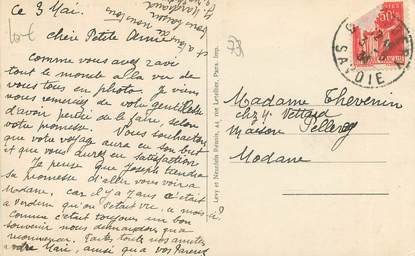 Ce 3 Mai.
chère Petite Amie
Comme vous avez ravi
tout le monde à la vue de
vous tous en photo. Je viens
vous remercier de votre gentillesse
d'avoir pensé de la faire, selon
votre promesse. Vous souhaitons
que votre voyage aura eu son but
et que vous aurez eu satisfaction
Je pense que Joseph tiendra
sa promesse d'aller vous voir à
Modane, car il y a 7 ans c'était
à Verdun qu'on s'était vu, à mois
Comme c'était toujours un bon
souvenir nous demandons qu'à
recommencer. Faites toutes nos amitiés
à votre Mari, ainsi qu'à vos Parents
73
Levy et Neurdein Réunis, 44, rue Letellier, Paris. Imp.
50c
SAVOIE
Madame Thevenin
chez Mr Vettard
Maison Pelleray
Modane